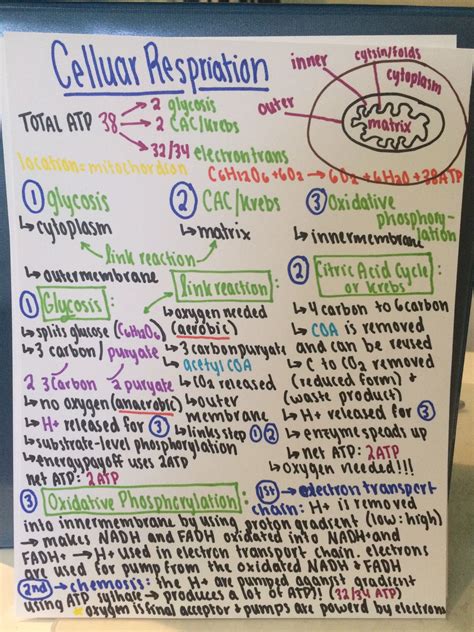 Celluar Respriation
inner
cytsin/folds
cytoplasm
outer
matrix
TOTAL ATP 38
2 glycosis
2 CAC/Krebs
32/34 electrontrans
location = mitochordion
C6H12O6+6O2 → 6O2 + 6H2O + 38ATP
① glycosis
↳ cytoplasm
② CAC/Krebs
↳ matrix
③ Oxidative phosphory-
lation
↳ innermembrane
link reaction
↳ outermembrane
① Glycosis:
↳ splits glucose (C6H12O6)
↳ 3 carbon/puryate
2 3carbon 2 puryate
↳ no oxygen (anaerobic)
↳ H+ released for ③
↳ substrate-level phosphorylation
↳ energy payoff uses 2ATP
net ATP: 2ATP
link reaction:
↳ oxygen needed
(aerobic)
↳ 3 carbon puryate
↳ acetyl COA
↳ CO2 released
↳ outer
membrane
↳ links step ① ②
② Citric Acid Cycle
or Krebs:
↳ 4 carbon to 6carbon
↳ COA is removed
and can be reused
↳ C to CO2 removed
(reduced form) +
(waste product)
↳ H+ released for ③
↳ enzyme speeds up
↳ net ATP: 2ATP
↳ oxygen needed!!!
③ Oxidative Phosphorylation:
1st → electron transport
chain: H+ is removed
into innermembrane by using proton gradient (low:high)
→ makes NADH and FADH oxidated into NADH+ and
FADH+ → H+ used in electron transport chain. electrons
are used for pump from the oxidated NADH & FADH
2nd → chemosis: the H+ are pumped against gradient
using ATP sythase → produces a lot of ATP!! (32/34 ATP)
* oxygen is final acceptor & pumps are powered by electrons